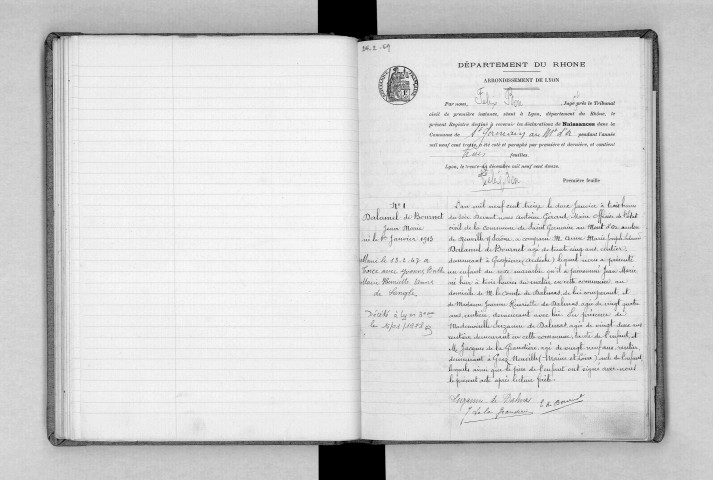 26.2.69
DÉPARTEMENT DU RHONE
ARRONDISSEMENT DE LYON
Par nous, Felix Bon, Juge près le Tribunal
civil de première instance, séant à Lyon, département du Rhône, le
présent Registre destiné à recevoir les déclarations de Naissances dans la
Commune de St Germain au Mt d'Or pendant l'année
mil neuf cent treize, a été coté et paraphé par première et dernière, et contient
feuilles.
Lyon, le treize décembre mil neuf cent douze.
Felix Bon
Première feuille
N° 1
Balamel de Bournet
Jean Marie
né le 1er Janvier 1913
Marié le 13.2.47 à
avec
Marie Henriette
de
Décédé à Lyon
le
L'an mil neuf cent treize le deux Janvier à trois heures
du soir devant nous Antoine Gérard, Maire Officier de l'état
civil de la Commune de Saint Germain au Mont d'Or canton
de Neuville s/Saône a comparu M. Marie Joseph
Balamel de Bournet agé de vingt cinq ans, rentier,
demeurant à Grospierres (Ardèche) lequel nous a présenté
un enfant du sexe masculin qu'il a prénommé Jean Marie,
né hier à trois heures du matin en cette commune au
domicile de M. le Comte de Dalmas de lui comparant et
de Madame Jeanne Henriette de Dalmas agée de vingt quatre
ans rentière demeurant avec lui. En présence de
Mademoiselle Suzanne de Dalmas agée de vingt deux ans
rentière, demeurant en cette commune, tante de l'enfant et
M. Jacques de la Grandière agé de vingt neuf ans, rentier,
demeurant à Grez Neuville (Maine et Loire) oncle de l'enfant,
lesquels ainsi que le père de l'enfant ont signé avec nous
le présent acte après lecture faite.
Suzanne de Dalmas
J de la Grandière
de Bournet